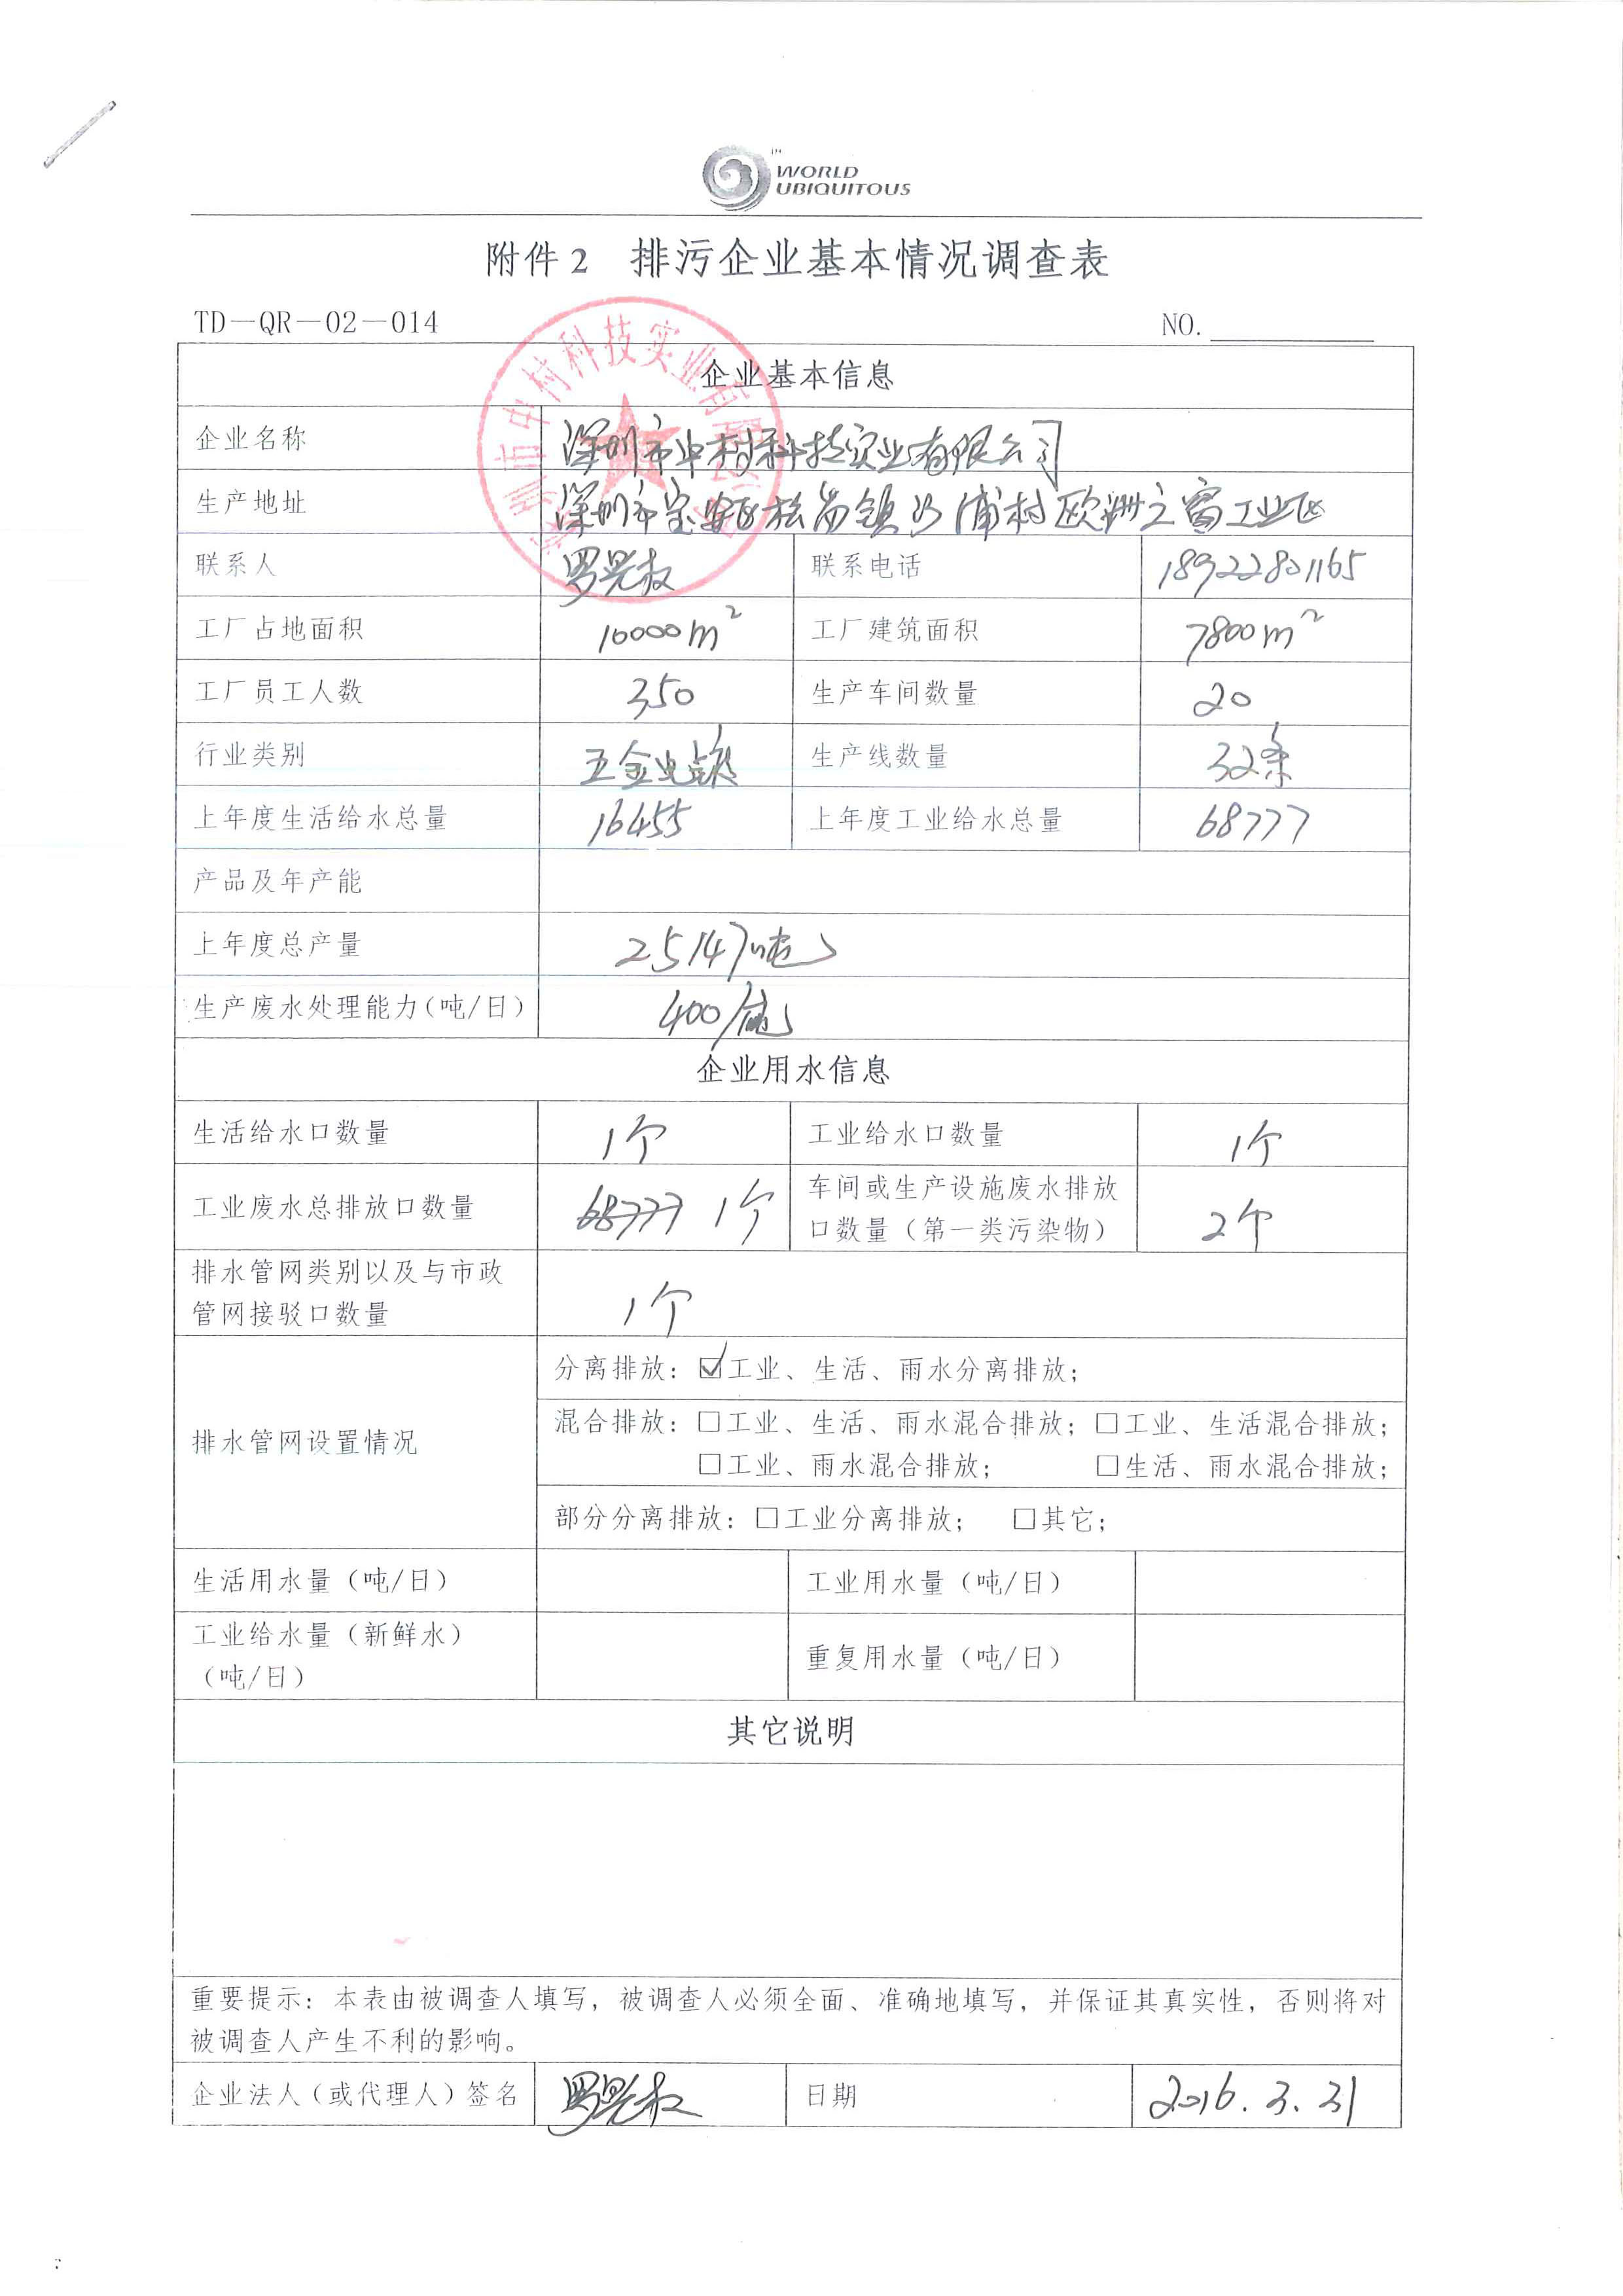 WORLD
UBIQUITOUS
附件2 排污企业基本情况调查表
TD－QR－02－014 NO.
企业基本信息
企业名称 深圳市中村科技实业有限公司
生产地址 深圳市宝安区松岗镇沙浦村欧洲之窗工业区
联系人 罗 权 联系电话 18922801165
工厂占地面积 10000m² 工厂建筑面积 7800m²
工厂员工人数 350 生产车间数量 20
行业类别 五金电镀 生产线数量 32条
上年度生活给水总量 16455 上年度工业给水总量 68777
产品及年产能
上年度总产量 25147吨
生产废水处理能力(吨/日) 400/吨
企业用水信息
生活给水口数量 1个 工业给水口数量 1个
工业废水总排放口数量 68777 1个 车间或生产设施废水排放
口数量（第一类污染物） 2个
排水管网类别以及与市政
管网接驳口数量 1个
排水管网设置情况
分离排放：☑工业、生活、雨水分离排放；
混合排放：□工业、生活、雨水混合排放；□工业、生活混合排放；
□工业、雨水混合排放； □生活、雨水混合排放；
部分分离排放：□工业分离排放； □其它；
生活用水量（吨/日） 工业用水量（吨/日）
工业给水量（新鲜水）
（吨/日） 重复用水量（吨/日）
其它说明
重要提示：本表由被调查人填写，被调查人必须全面、准确地填写，并保证其真实性，否则将对
被调查人产生不利的影响。
企业法人（或代理人）签名 罗 权 日期 2016.3.31
深圳市中村科技实业有限公司